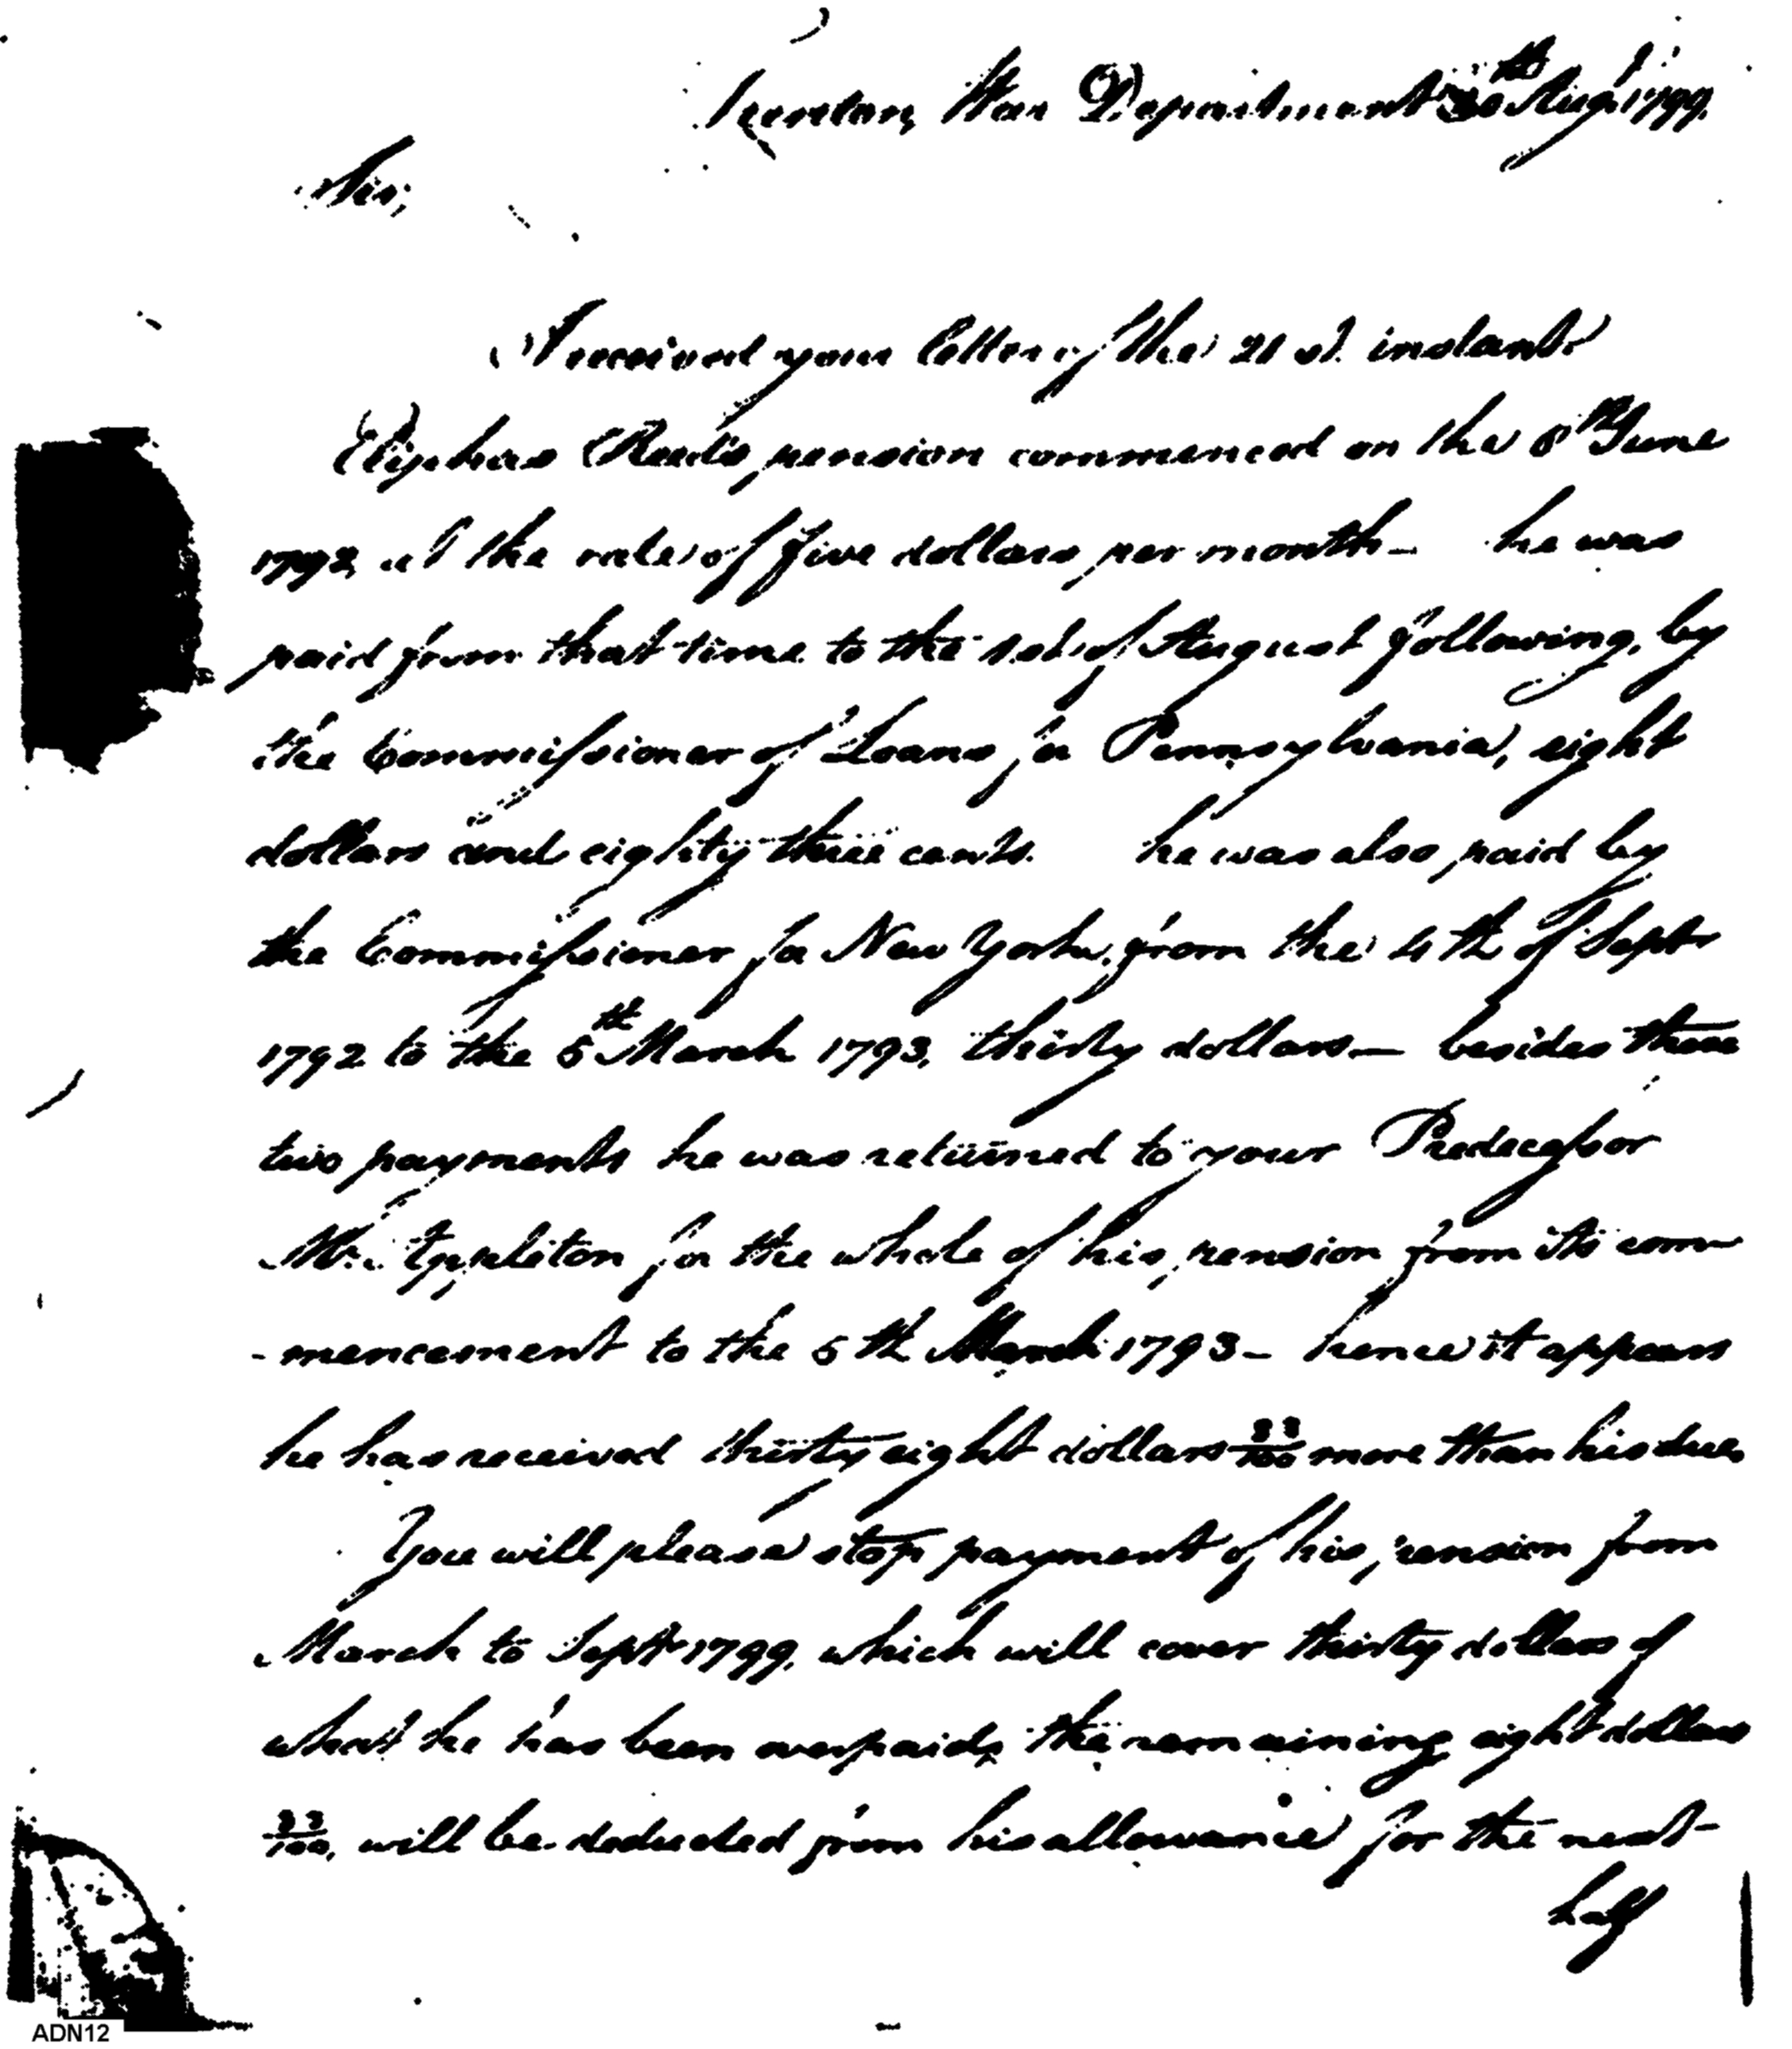 Trenton, War Department 30th Augt. 1799.
Sir;
I received your letter of the 21 st. instant.
Eliphas Reed's pension commenced on the 8th June
1792, at the rate of five dollars per month — he was
paid from that time to the 1st of August following, by
the Commissioner of Loans for Pennsylvania, eight
dollars and eighty three cents. he was also paid by
the Commissioner for New York, from the 4th of Sept
1792 to the 5th March 1793, thirty dollars — besides these
two payments he was returned to your Predecessor
Mr. Appleton for the whole of his pension from its com
-mencement to the 5th March 1793 — hence it appears
he has received thirty eight dollars 83/100 more than his due.
You will please stop payment of his pension from
March to Septr. 1799, which will cover thirty dollars of
what he has been overpaid, the remaining eight dollars
83/100, will be deducted from his allowance for the next
half
ADN12